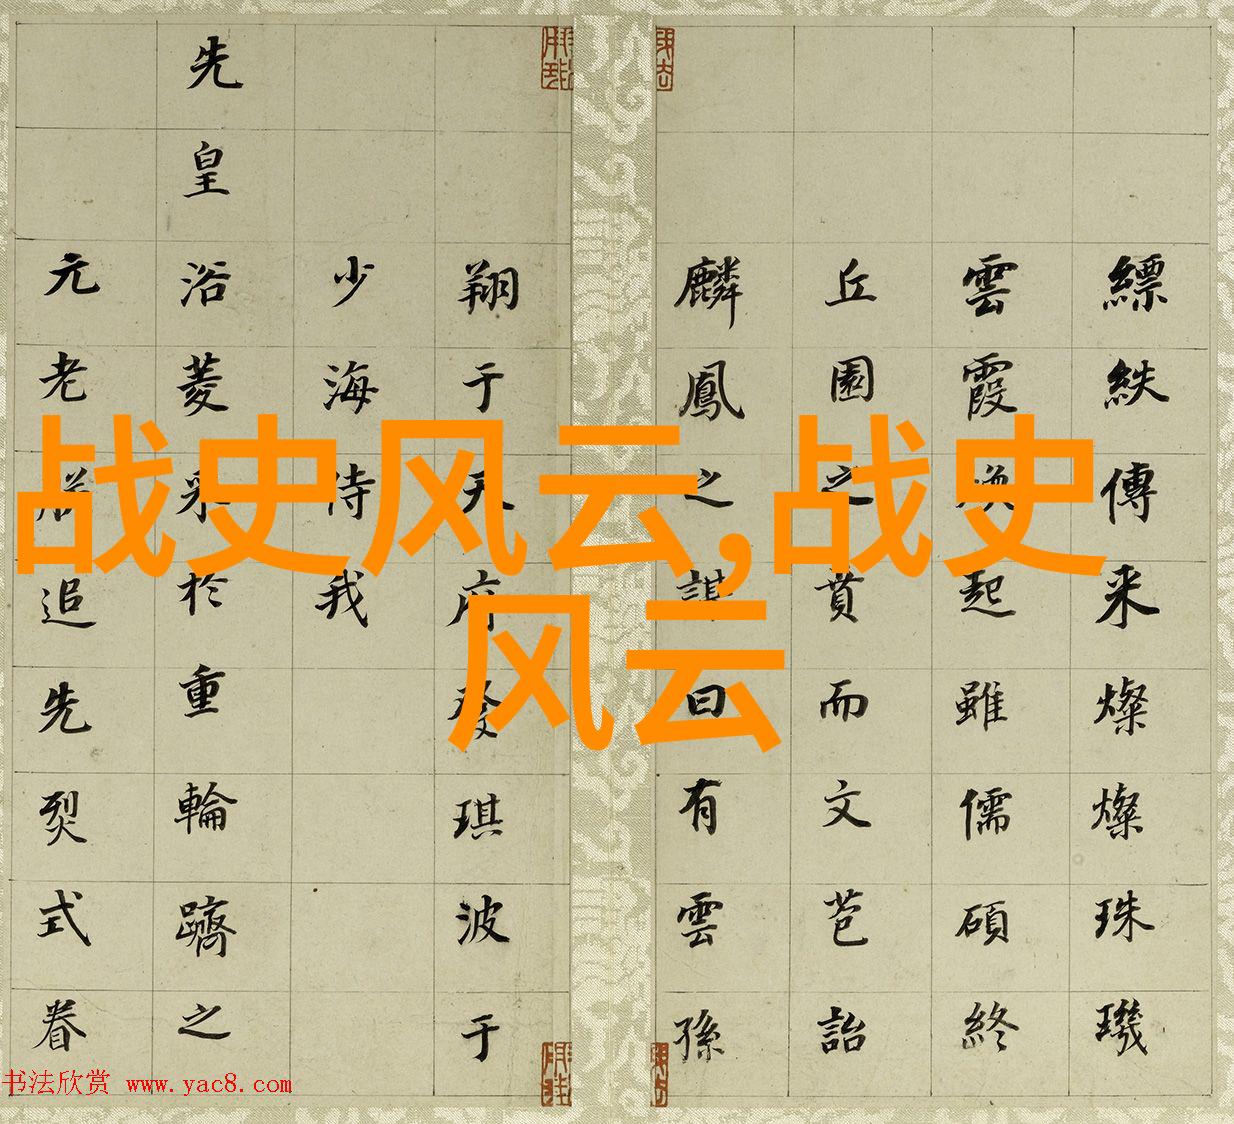 战史风云,战史
风云
縹紩傳来燦燦珠璣
雲霞起雖儒碩終
丘園之賁而文芭詒
麟鳳之曰有雲孫
翔于天府發琪波于
少海恃我
先皇浴菱采於重輪躋之
元老追先烈式眷
书法欣赏 www.yac8.com